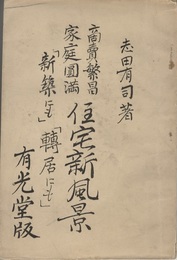 志田有司著
商賣繁昌
家庭圓滿
住宅新風景
「新築にも」「轉居にも」
有光堂版